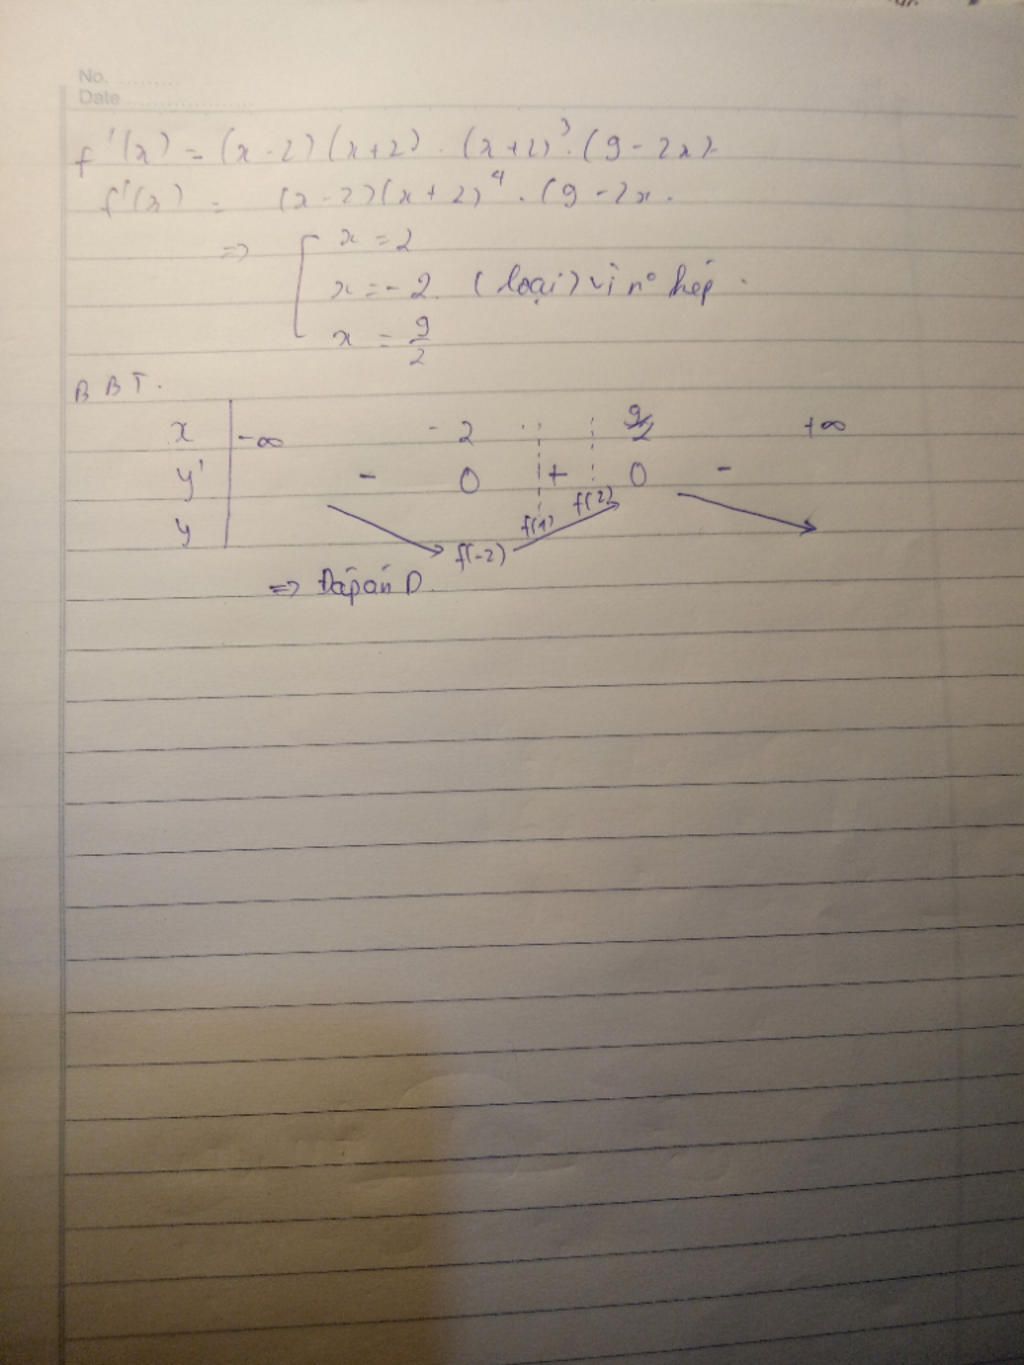 No. ............
Date ......................
f'(x) = (x-2)(x+2).(x+2)³.(9-2x).
f'(x) = (x-2)(x+2)⁴.(9-2x.
=> [ x = 2
x = -2. (loại) vì n° kép.
x = 9/2
BBT.
x | -∞ -2 9/2 +∞
y' | - 0 + 0 -
y f(-2) f(1) f(2)
=> Đáp án D.